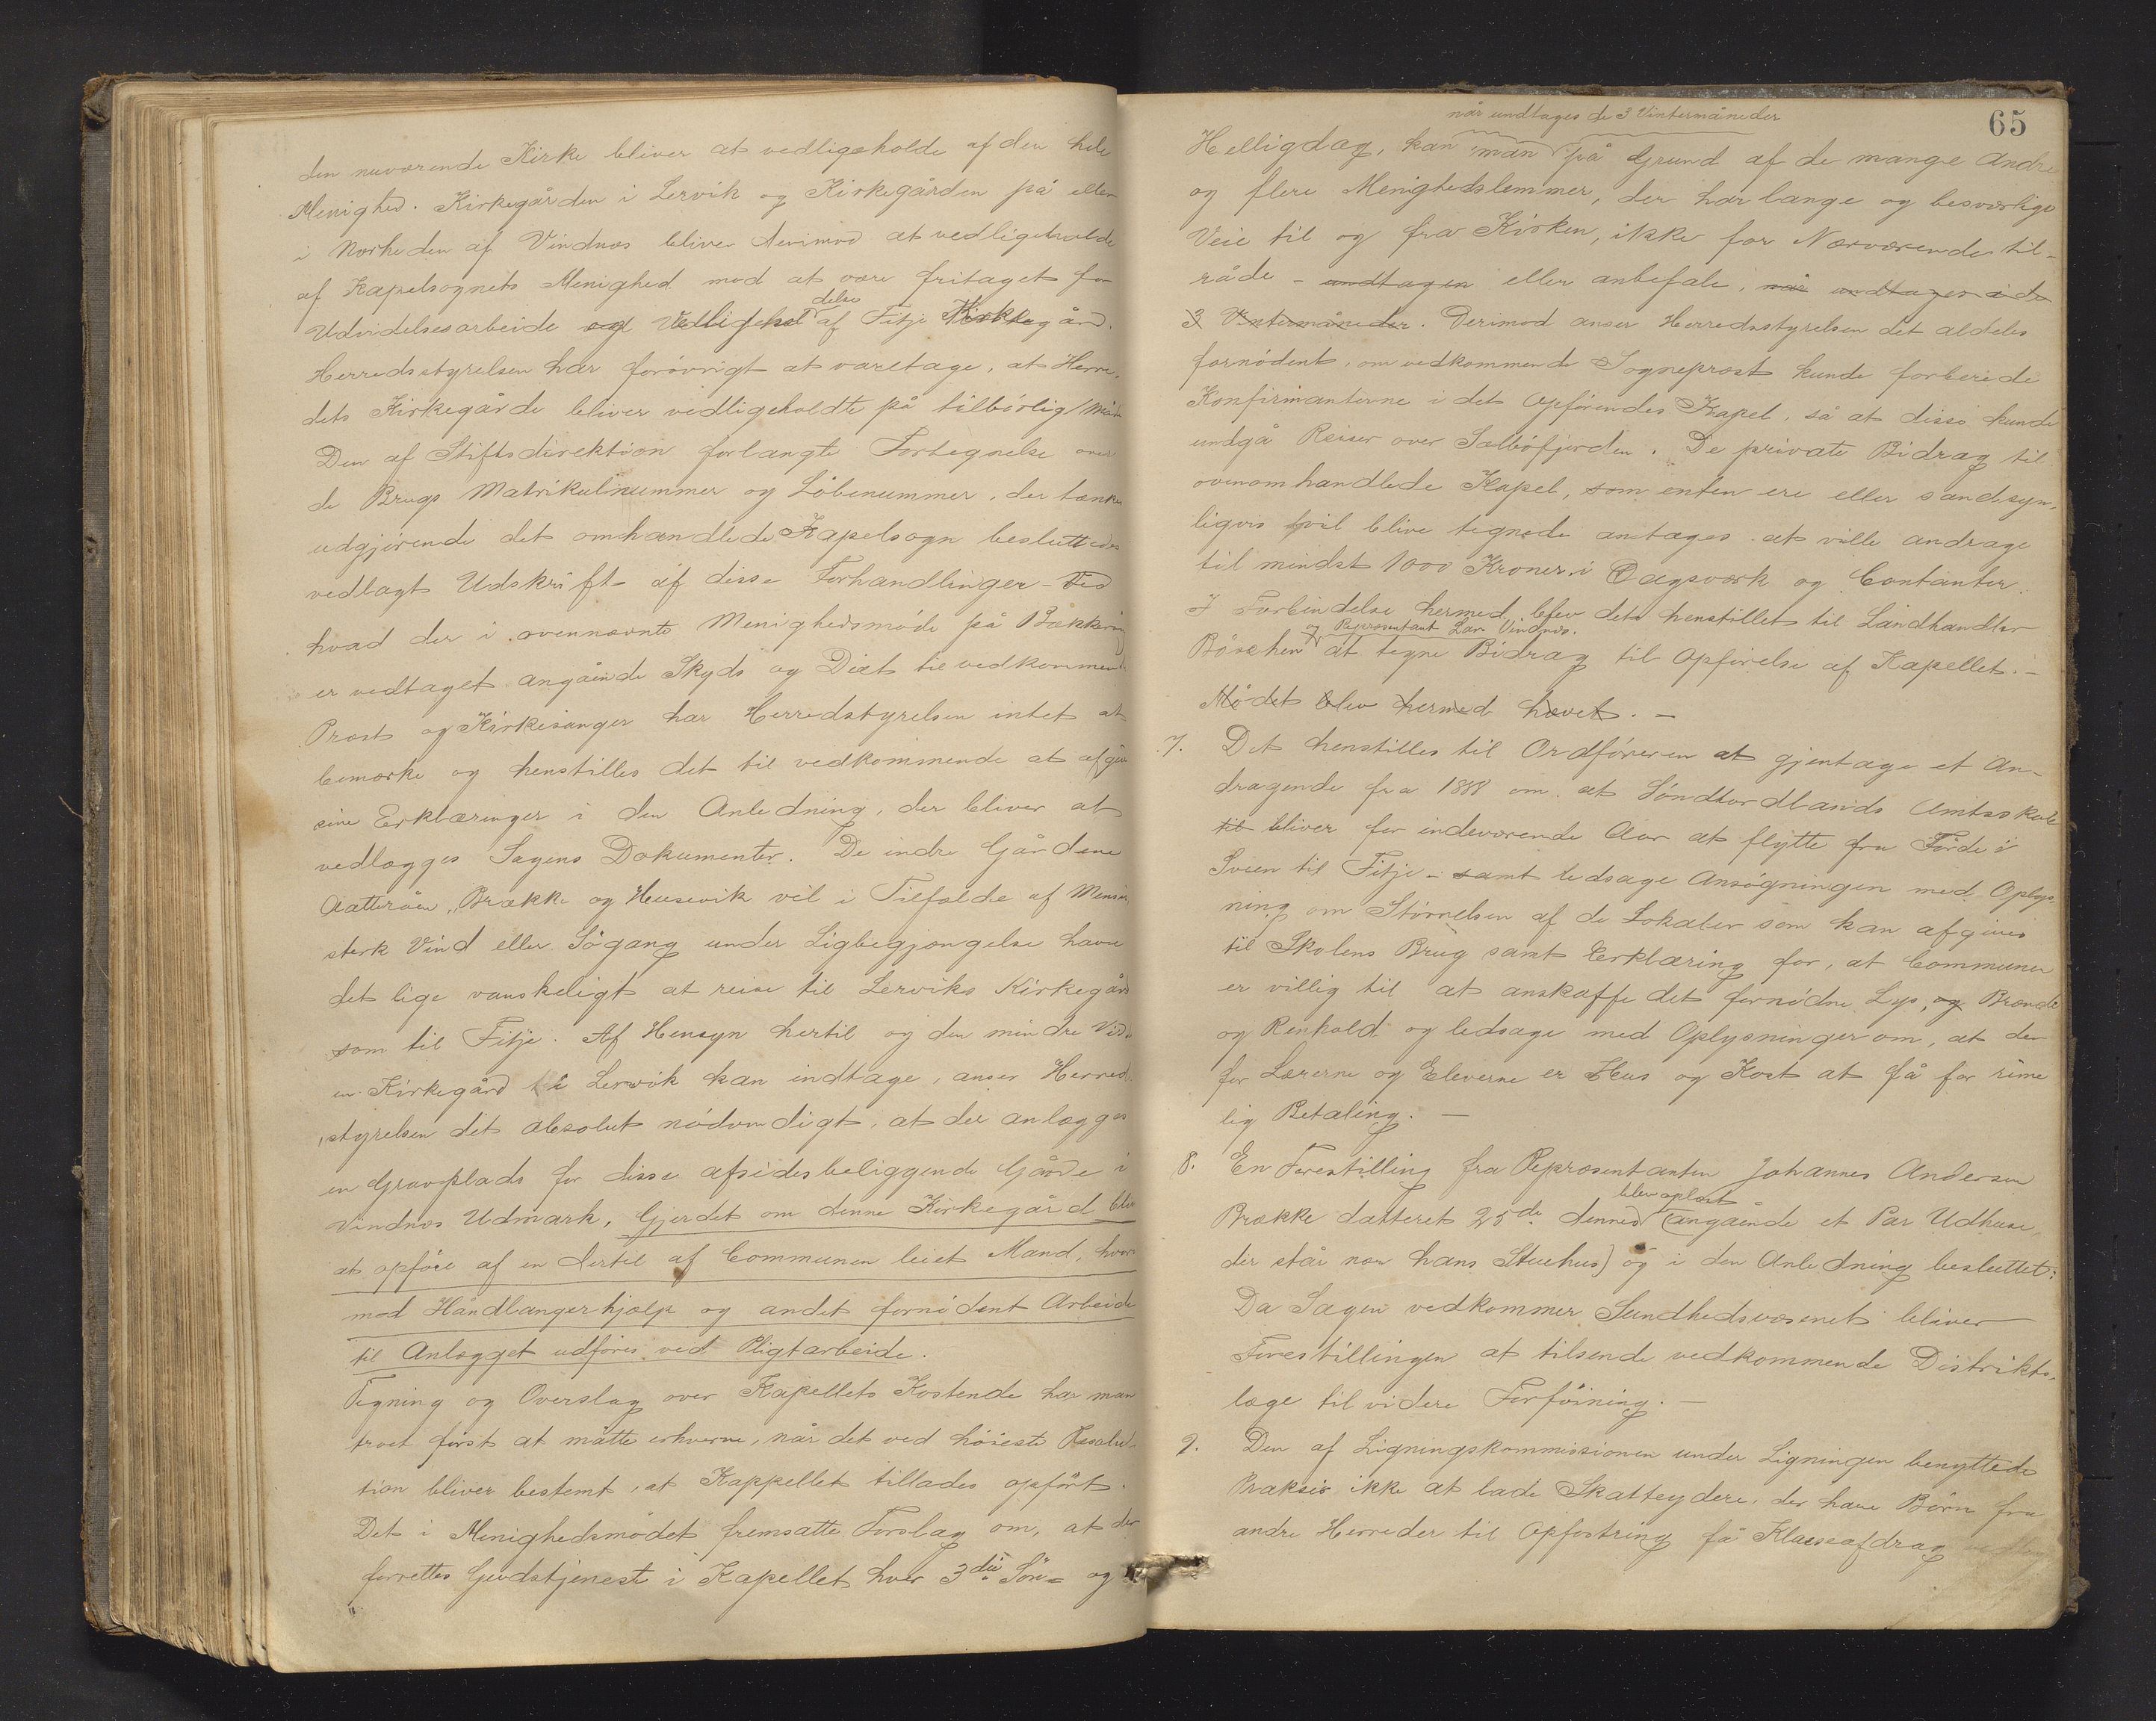 den nuværende Kirke bliver at vedligeholde af den hele
Menighed. Kirkegården i Lervik og Kirkegården på eller
i Nærheden af Vindnæs bliver derimod at vedligeholde
af Kapelsognets Menighed mod at være fritaget for
delse
Udvidelsesarbeide og Vedligehol af Fitje Kirkegård.
Herredsstyrelsen har forøvrigt at varetage, at Herre-
dets Kirkegårde bliver vedligeholdte på tilbørlig Måde
Den af Stiftsdirektion forlangte Fortegnelse over
de Brugs Matrikulnummer og Løbenummer, der tænkes
udgjørende det omhandlede Kapelsogn besluttedes
vedlagt Udskrift af disse Forhandlinger – Ved
hvad der i ovennævnte Menighedsmøde på Bækken
er vedtaget angående Skyds og Diæt til vedkommende
Præst og Kirkesanger har Herredstyrelsen intet at
bemærke og henstilles det til vedkommende at afgive
sine Erklæringer i den Anledning, der bliver at
vedlægges Sagens Dokumenter. De indre Gårdene
Aatteråen, Brække og Husevik vil i Tilfælde af
stærk Vind eller Søgang under Ligbegjængelse have
det lige vanskeligt at reise til Lerviks Kirkegård
som til Fitje. Af Hensyn hertil og den mindre Vidde
en Kirkegård i Lervik kan indtage, anser Herreds-
styrelsen det absolut nødvendigt, at der anlægges
en Gravplads for disse afsidesbeliggende Gårde i
Vindnæs Udmark, Gjerdet om denne Kirkegård bliver
at opføre af en dertil af Communen leiet Mand, hvori-
mod Håndlangerhjælp og andet fornødent Arbeide
til Anlægget udføres ved Pligtarbeide.
Tegning og Overslag over Kapellets Kostende har man
troet først at måtte erhverve, når det ved høieste Resolu-
tion bliver bestemt, at Kappellet tillades opført.
Det i Menighedsmødet fremsatte Forslag om, at der
forrettes Gudstjeneste i Kapellet hver 3die Søn- og
65
når undtages de 3 Vintermåneder
Helligdag, kan man på Grund af de mange Andre
og flere Menighedslemmer, der har lange og besværlige
Veie til og fra Kirken, ikke for Nærværende til-
råde – undtagen eller anbefale, når undtages i de
3 Vintermåneder. Derimod anser Herredsstyrelsen det aldeles
fornødent, om vedkommende Sogneprest kunde forberede
Konfirmanterne i det Opførendes Kapel, så at disse kunde
undgå Reiser over Sælbøfjorden. De private Bidrag til
ovenomhandlede Kapel, som enten ere eller sandsyn-
ligvis vil blive tegnede antages at ville andrage
til mindst 1000 Kroner i Dagsværk og Contanter.
I Forbindelse hermed blev det henstillet til Landhandler
og Representant Lars Vindnæs.
Böschen at tegne Bidrag til Opførelse af Kapellet. –
Mødet blev hermed hævet. –
7. Det henstilles til Ordføreren at gjentage et An-
dragende fra 1888 om at Søndhordlands Amtsskole
til bliver for indeværende Aar at flytte fra Førde i
Sveen til Fitje – samt ledsage Ansøgningen med Oplys-
ning om Størrelsen af de Lokaler som kan afgives
til Skolens Brug samt Erklæring for, at Communen
er villig til at anskaffe det fornødne Lys, og Brænde
og Renhold og ledsage med Oplysninger om, at der
for Lærerne og Eleverne er Hus og Kost at få for rime
lig Betaling. –
8. En Forestilling fra Repræsentanten Johannes Andersen
blev oplæst
Brække datteret 25de dennes (angående et Par Udhuse,
der står nær hans Stuehus) og i den Anledning besluttet:
Da Sagen vedkommer Sundhedsvæsenet bliver
Forestillingen at tilsende vedkommende Distrikts-
læge til videre Forføining. –
9. Den af Ligningskommissionen under Ligningen benyttede
Praksis ikke at lade Skatteydere, der have Børn fra
andre Herreder til Opfostring få Klasseafdrag